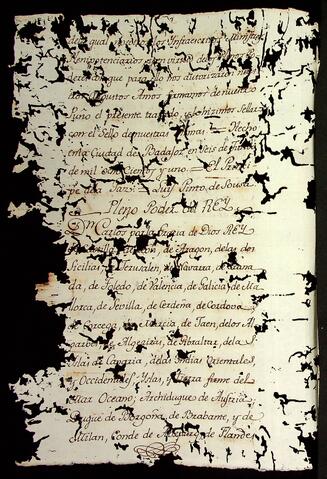 delo qual nosotros los Infrascritos Ministros
Plenipotenciarios en virtud de
deres con que para ello nos autorizaron nues
tros Augustos Amos, firmamos de nuestro
Puno el presente tratado, y lo hizimos Sellar
con el Sello de nuestras Armas. Hecho
en la Ciudad de Badajoz en Seis de Junio
de mil ochocientos y uno. El Princi
pe de la Paz. Luis Pinto de Sousa.
Pleno Poder del REY
Dn. Carlos por la gracia de Dios REY
de Castilla, de Leon, de Aragon, de las dos
Sicilias, de Jerusalen, de Navarra, de Grana
da, de Toledo, de Valencia, de Galicia, de Ma
llorca, de Sevilla, de Cerdeña, de Cordova,
de Corcega, de Murcia, de Jaen, delos Al
garbes, de Algeciras, de Gibraltar, de las
Yslas de Canaria, de las Indias Orientales,
y Occidentales, Yslas, y tierra firme del
Mar Oceano; Archiduque de Austria;
Duque de Borgoña, de Brabante, y de
Milan, Conde de Abspurg, de Flandes